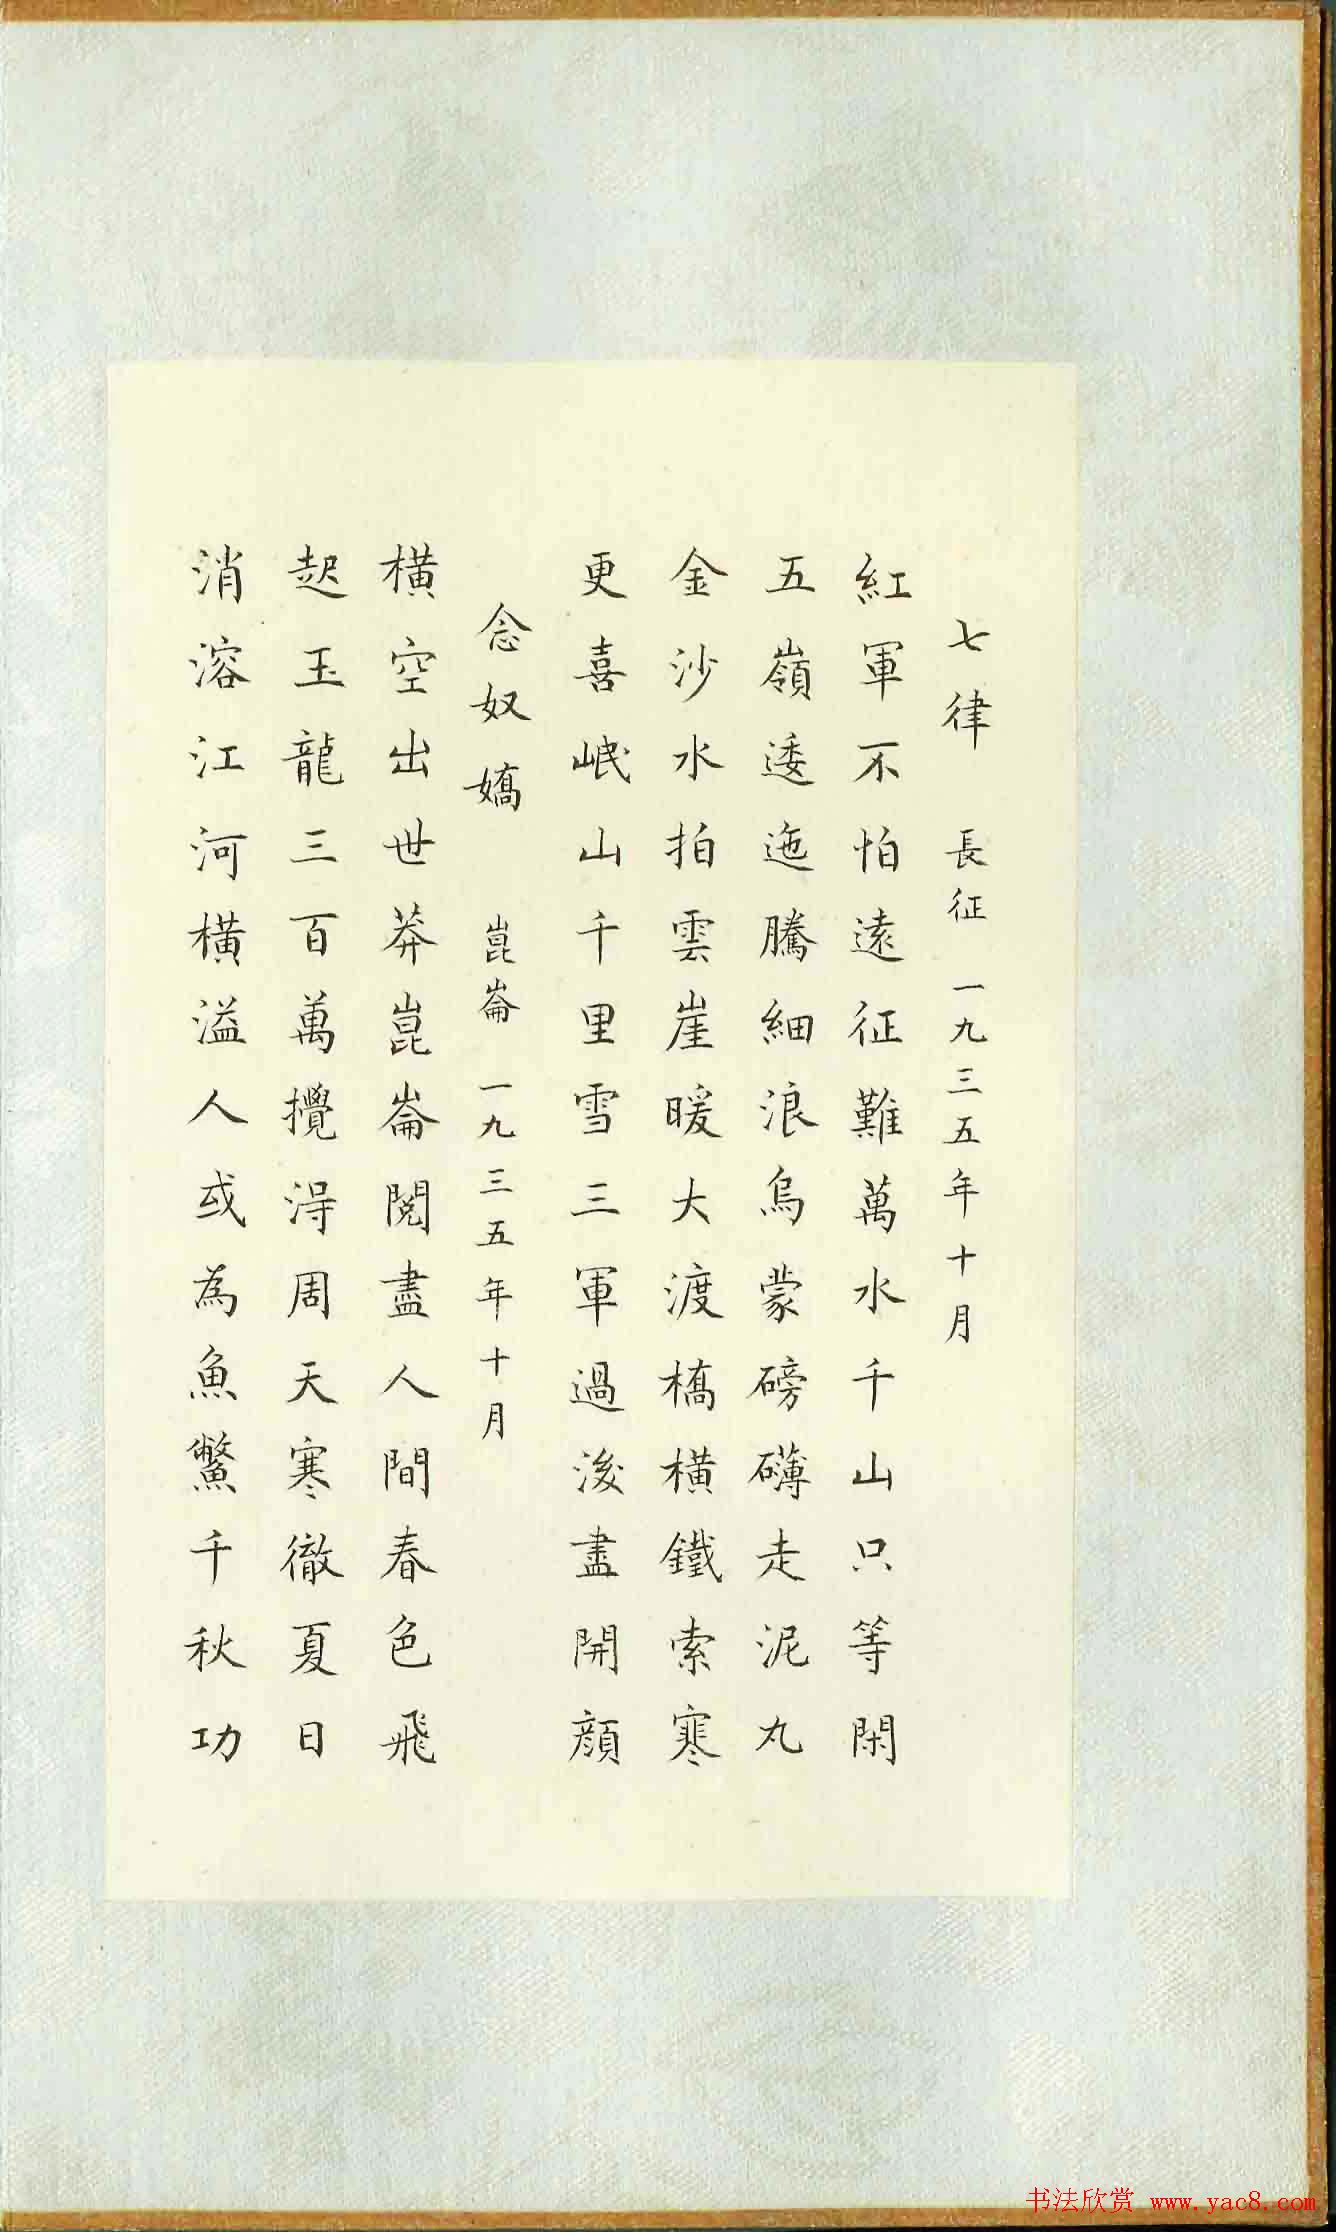 七律 長征 一九三五年十月
紅軍不怕遠征難萬水千山只等閑
五嶺逶迤騰細浪烏蒙磅礴走泥丸
金沙水拍雲崖暖大渡橋橫鐵索寒
更喜岷山千里雪三軍過後盡開顔
念奴嬌 崑崙 一九三五年十月
橫空出世莽崑崙閱盡人間春色飛
起玉龍三百萬攪得周天寒徹夏日
消溶江河橫溢人或為魚鱉千秋功
书法欣赏 www.yac8.com